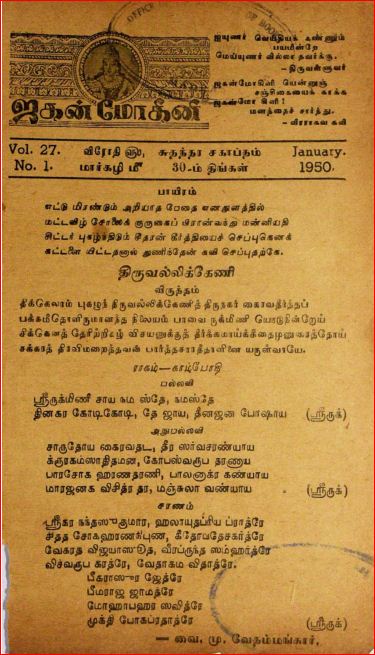 OFFICE OF
ஐயுணர் வெய்தியக் கண்ணும்
பயமின்றே
மெய்யுணர் வில்லாதவர்க்கு.
—திருவள்ளுவர்
ஜகன்மோகினி யென்னுஞ்
சஞ்சிகையைக் காக்க
ஜகன்மோகினி!
மனத்தைச் சார்ந்து.
— வீரராகவ கவி
ஜகன்மோகினி
Vol. 27. விரோதி ௵, சுதந்தர சகாப்தம் January.
No. 1. மார்கழி ௴ 30-ம் திங்கள் 1950.
பாயிரம்
எட்டு மிரண்டும் அறியாத பேதை எனதுளத்தில்
மட்டவிழ் சோலைக் குருகைப் பிரான்வந்து மன்னியதி
சிட்டர் புகழ்ந்திடும் சீதரன் கீர்த்தியைச் செப்புகெனக்
கட்டளை யிட்டதனால் துணிந்தேன் கவி செப்புதற்கே.
திருவல்லிக்கேணி
விருத்தம்
திக்கெலாம் புகழுந் திருவல்லிக்கேணித் திருநகர் கைரவதீர்த்தப்
பக்கமிதொளிருமானந்த நிலைய பாவை ருக்மிணி யொடுநின்றேய்
சிக்கெனத் தேரிற்றிகழ் விசயனுக்குத் தீர்க்கமாய்க்கீதைமுனுரைத்தோய்
சக்கராத் திரவிமறைத்தவன் பார்த்தசாரதிதாளிணை யருள்வாயே.
ராகம்—காம்போதி
பல்லவி
ஸ்ரீருக்மிணீ சாய நம ஸ்தே, நமஸ்தே
தினகர கோடிகோடி, தே ஜாய, தீனஜன போஷாய (ஸ்ரீருக்)
அநுபல்லவி
சாருதோய கைரவதட, தீர ஸர்வசரண்யாய
க்ரூரகம்ஸாதிதமன, கோபஸ்வரூப தரணாய
பாரசோக ஹரணதரணி, பாலனாக்ர கண்யாய
மாரஜனக விசித்ர தர, மஞ்சுலா வண்யாய (ஸ்ரீருக்)
சரணம்
ஸ்ரீகர நந்தஸுகுமார, ஹலாயுதப்ரிய ப்ராத்ரே
சிதத சோகஹரணநிபுண, கீதோபதேசகர்த்ரே
வேகரத விஜயாஸூத, வீரப்ருந்த ஸம்ஹர்த்ரே
விச்வரூப கரத்ரே, வேதாகம விதாத்ரே.
பீகராஸுர ஜேத்ரே
பீமராஜ ஜாமத்ரே
மோஹாபஹர ஸவித்ரே
முக்தி போகப்ரதாத்ரே (ஸ்ரீருக்)
— வை. மு. வேதம்மங்கார்.